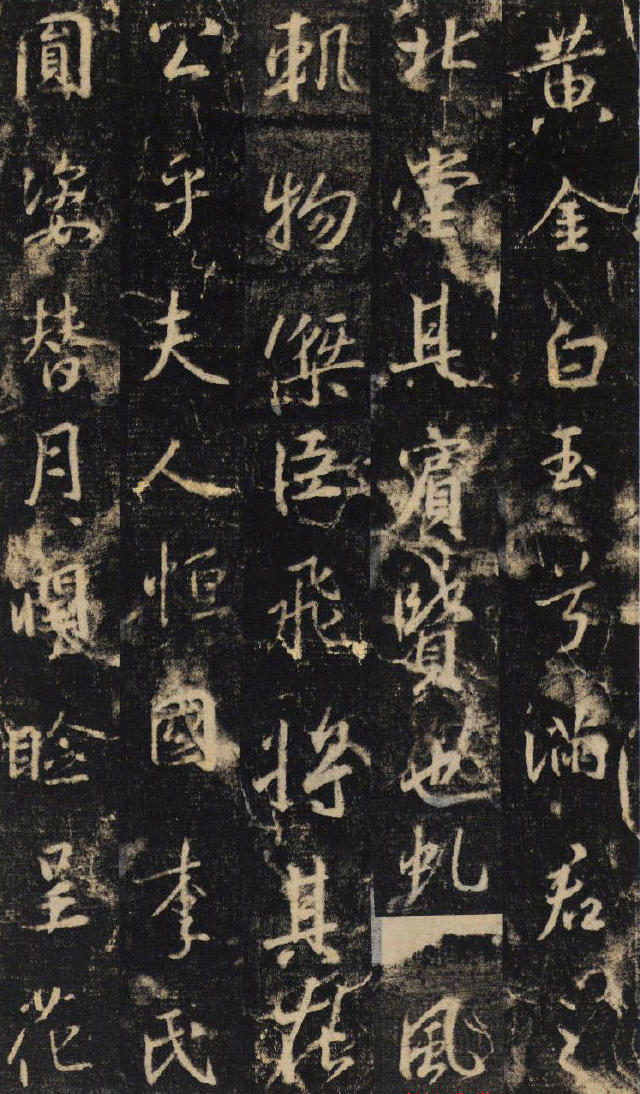 黃金白玉兮滿君之
北堂其賓賢也虬風
軌物傑臣飛將其
公乎夫人恒國李氏
圓姿替月潤臉呈花